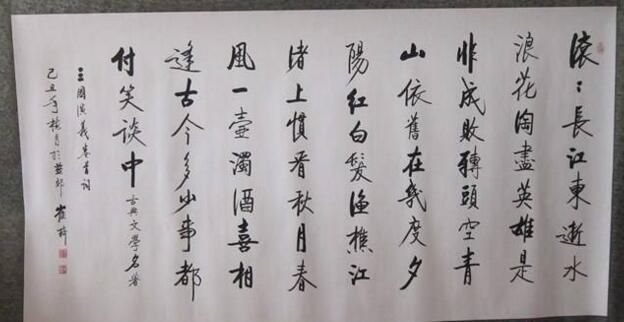 滚〻長江東逝水
浪花淘盡英雄是
非成敗轉頭空青
山依舊在幾度夕
陽紅白髮漁樵江
渚上慣看秋月春
風一壺濁酒喜相
逢古今多少事都
付笑談中 古典文學名著
三國演義卷首词
己丑年桂月於 崔